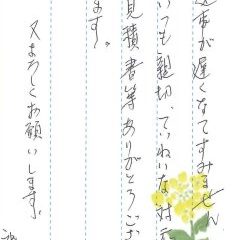 返事が遅くなてすみません
いつも親切、ていねいな対応
見積書等ありがとうござ
ます。
又よろしくお願いします。